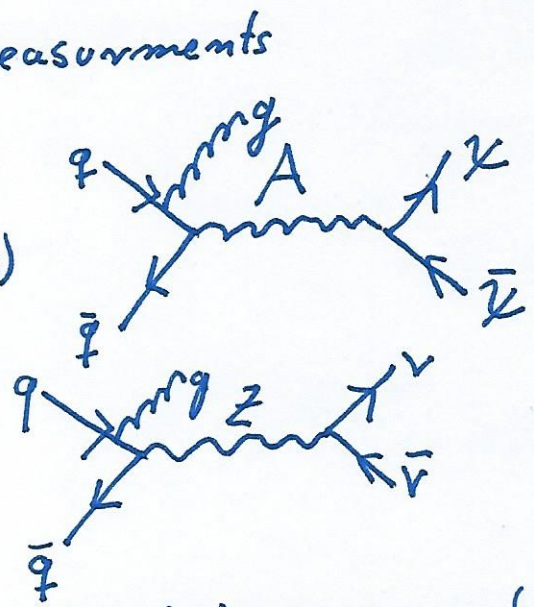 easurments
g
q A χ
)
q̄ χ̄
q g Z ν
ν̄
q̄